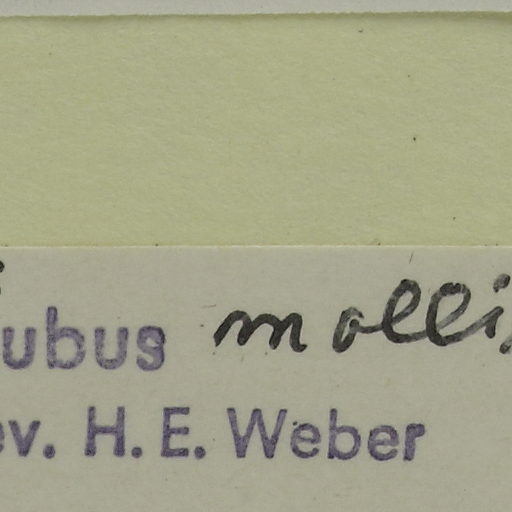 ubus molli
ev. H. E. Weber